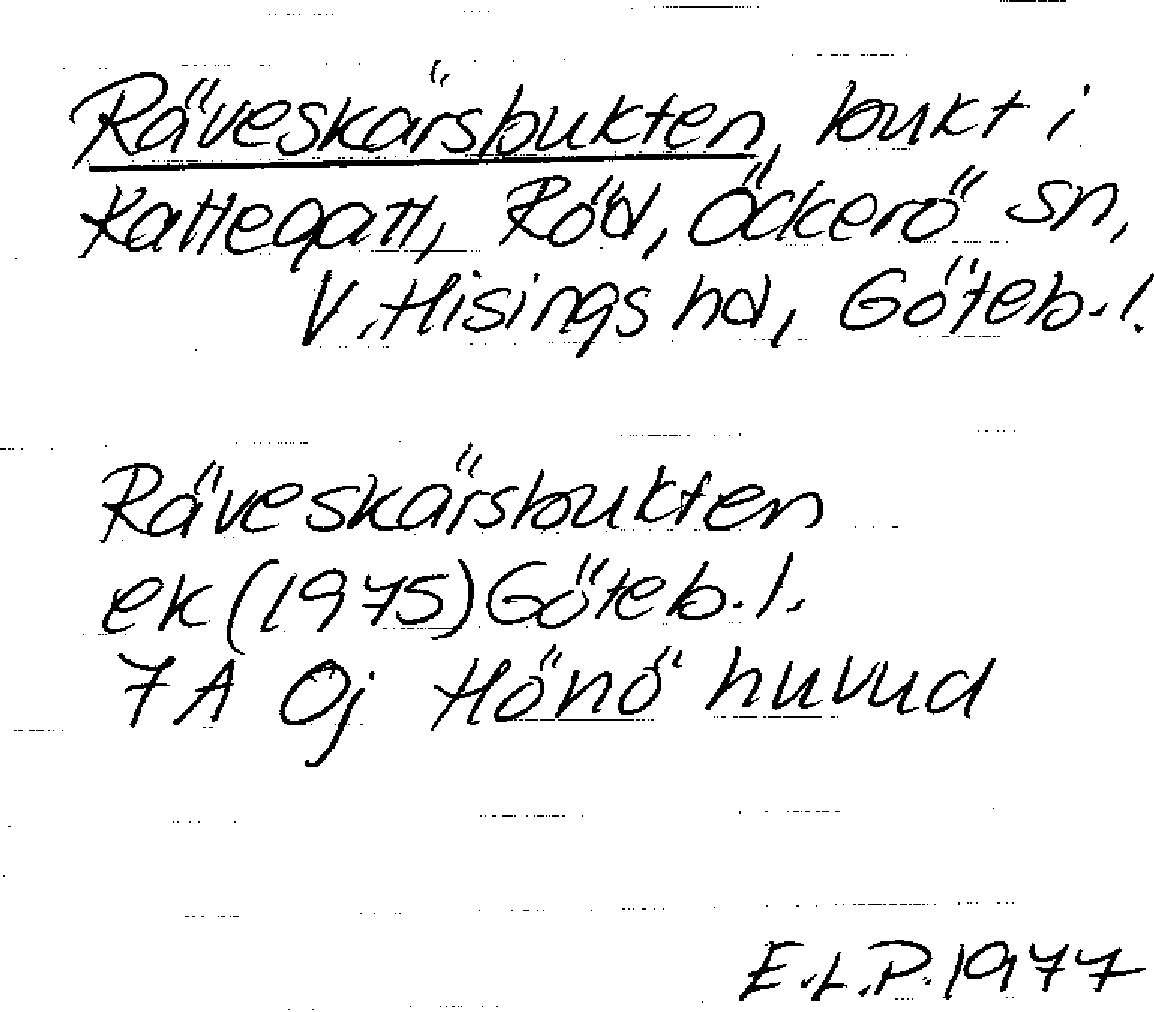 Räveskärsbukten, bukt i
Kattegatt, Röd, Öckerö sn,
V. Hisings hd, Göteb. l.
Räveskärsbukten
ek (1975) Göteb. l.
7A Oj Hönö huvud
E.L.P. 1977